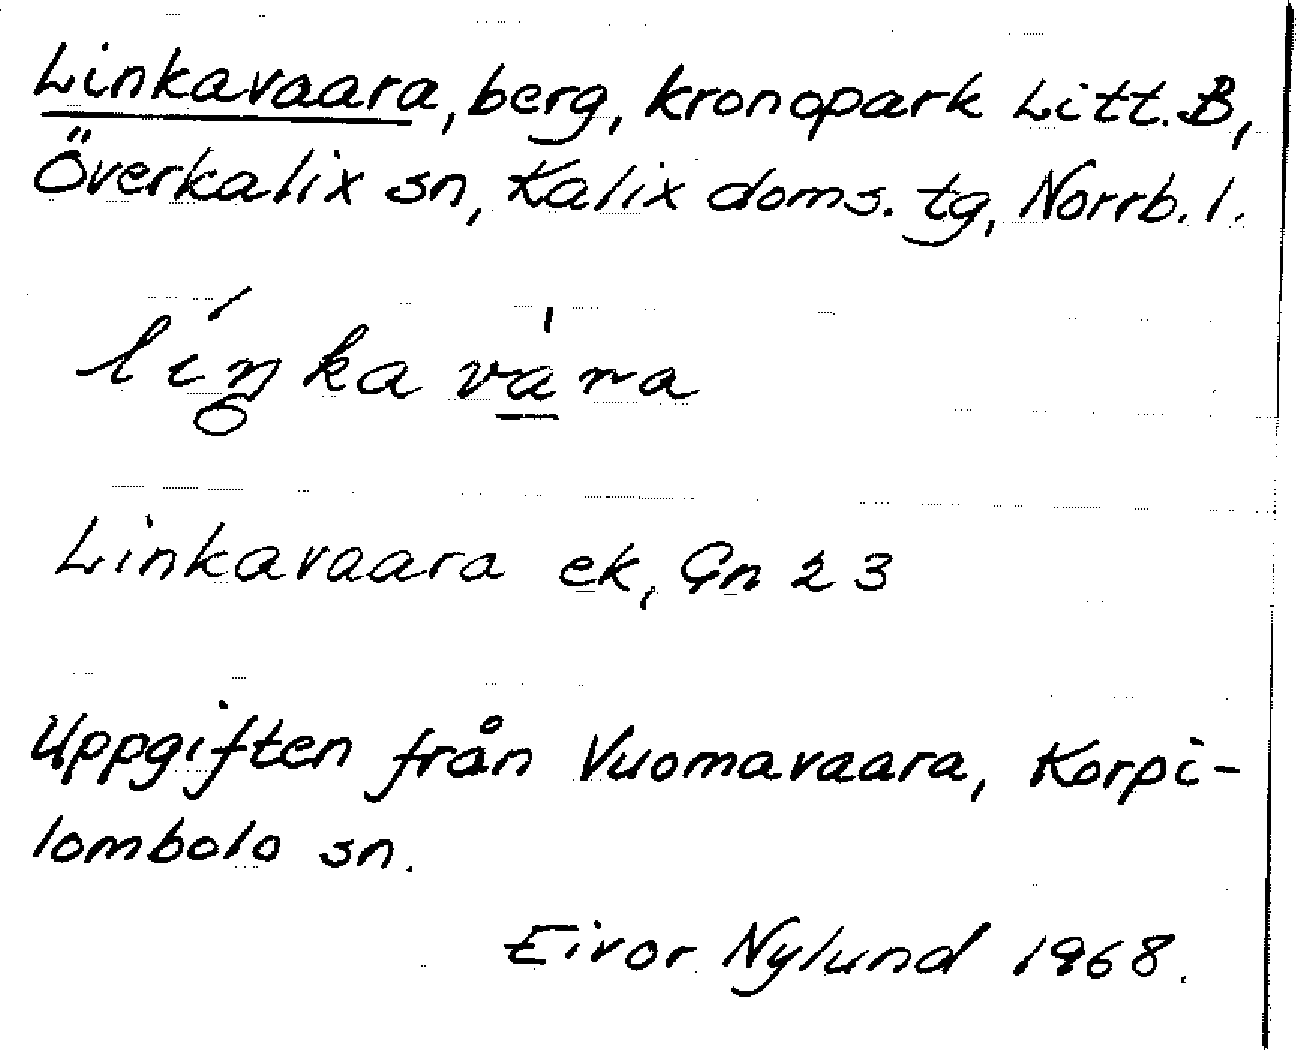 Linkavaara, berg, kronopark Litt. B,
Överkalix sn, Kalix doms. tg, Norrb. l.
líŋkavàra
Linkavaara ek, Gn 23
Uppgiften från Vuomavaara, Korpi-
lombolo sn.
Eivor Nylund 1968.